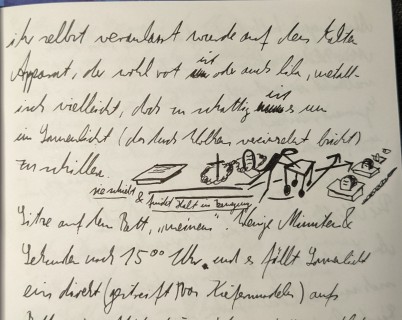 ihr selbst veranlasst wurde auf dem kalten
Apparat, der wohl rot ist oder auch lila, metall-
isch vielleicht, doch zu schattig ist es um
im Sonnenlicht (das durch Wolken vereinzelt bricht)
zu schillern.
sie schiebt & findet Halt in Bewegung
Sitze auf dem Bett, "meinem". Einige Minuten &
Sekunden nach 15:00 Uhr und es fällt Sonnenlicht
ein direkt (gestreift von Kiefernnadeln) aufs